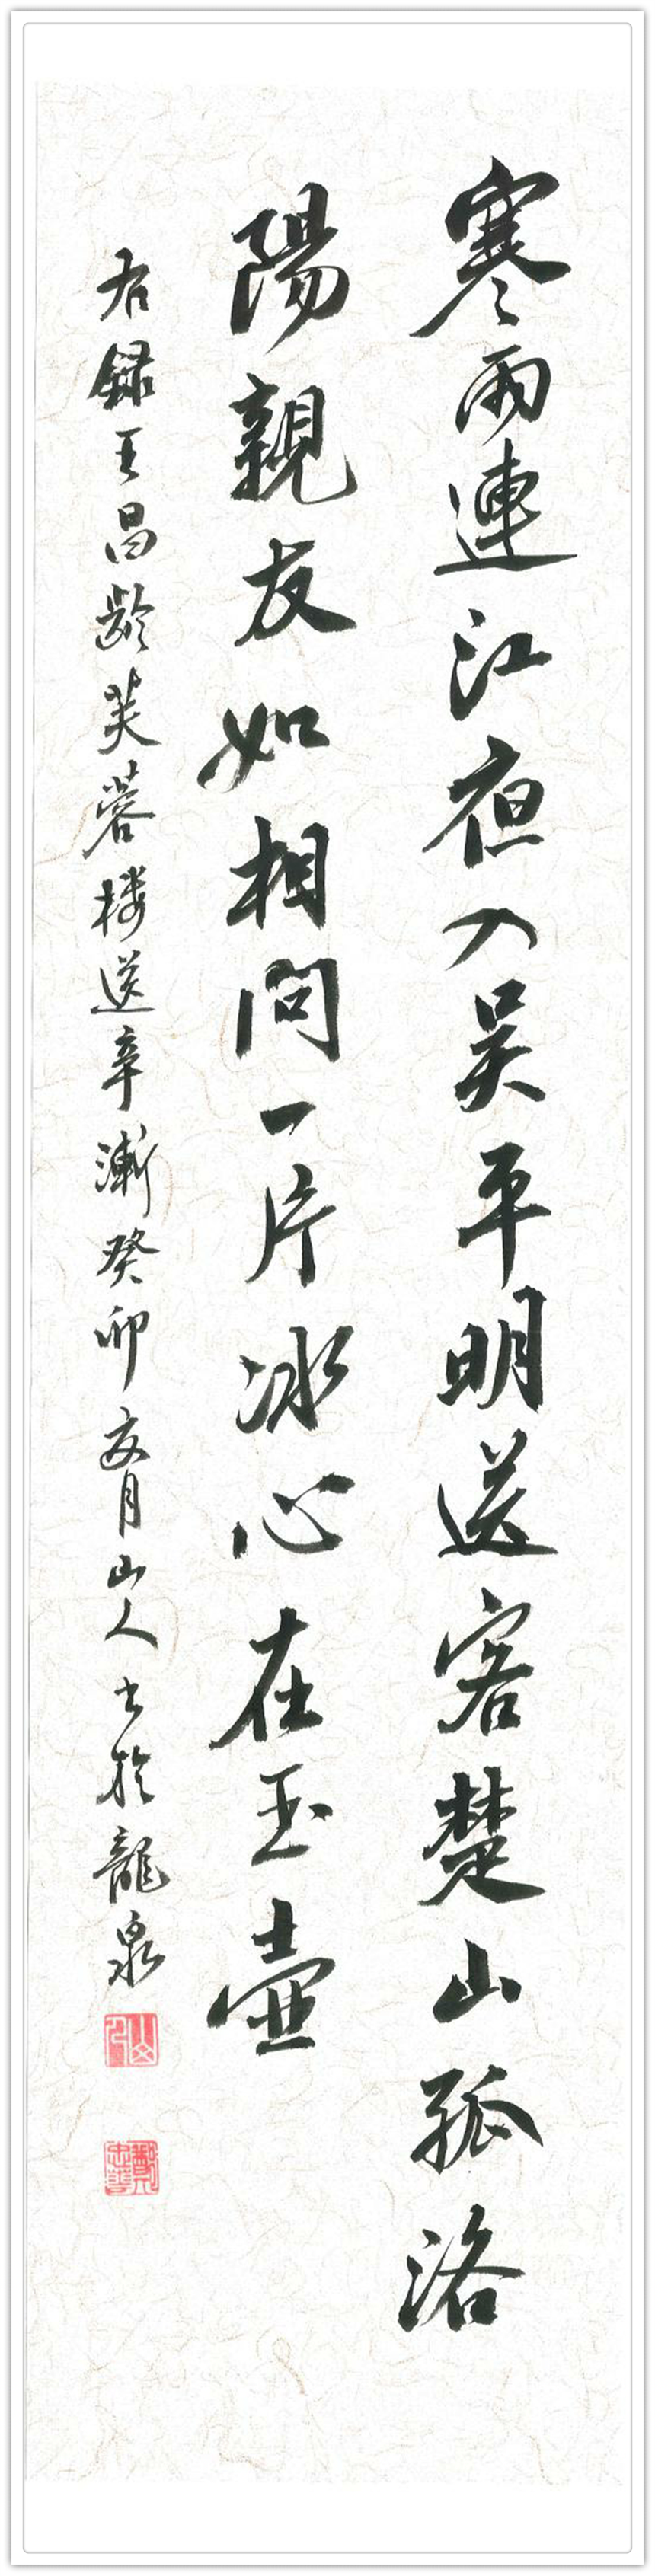 寒雨連江夜入吴平明送客楚山孤洛
陽親友如相問一片冰心在玉壷
右録王昌齡芙蓉楼送辛漸癸卯夜月山人书於龍泉
山人